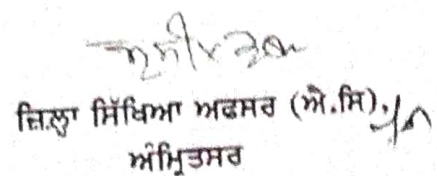 ਜ਼ਿਲ੍ਹਾ ਸਿੱਖਿਆ ਅਫਸਰ (ਐ.ਸਿ),
ਅੰਮ੍ਰਿਤਸਰ